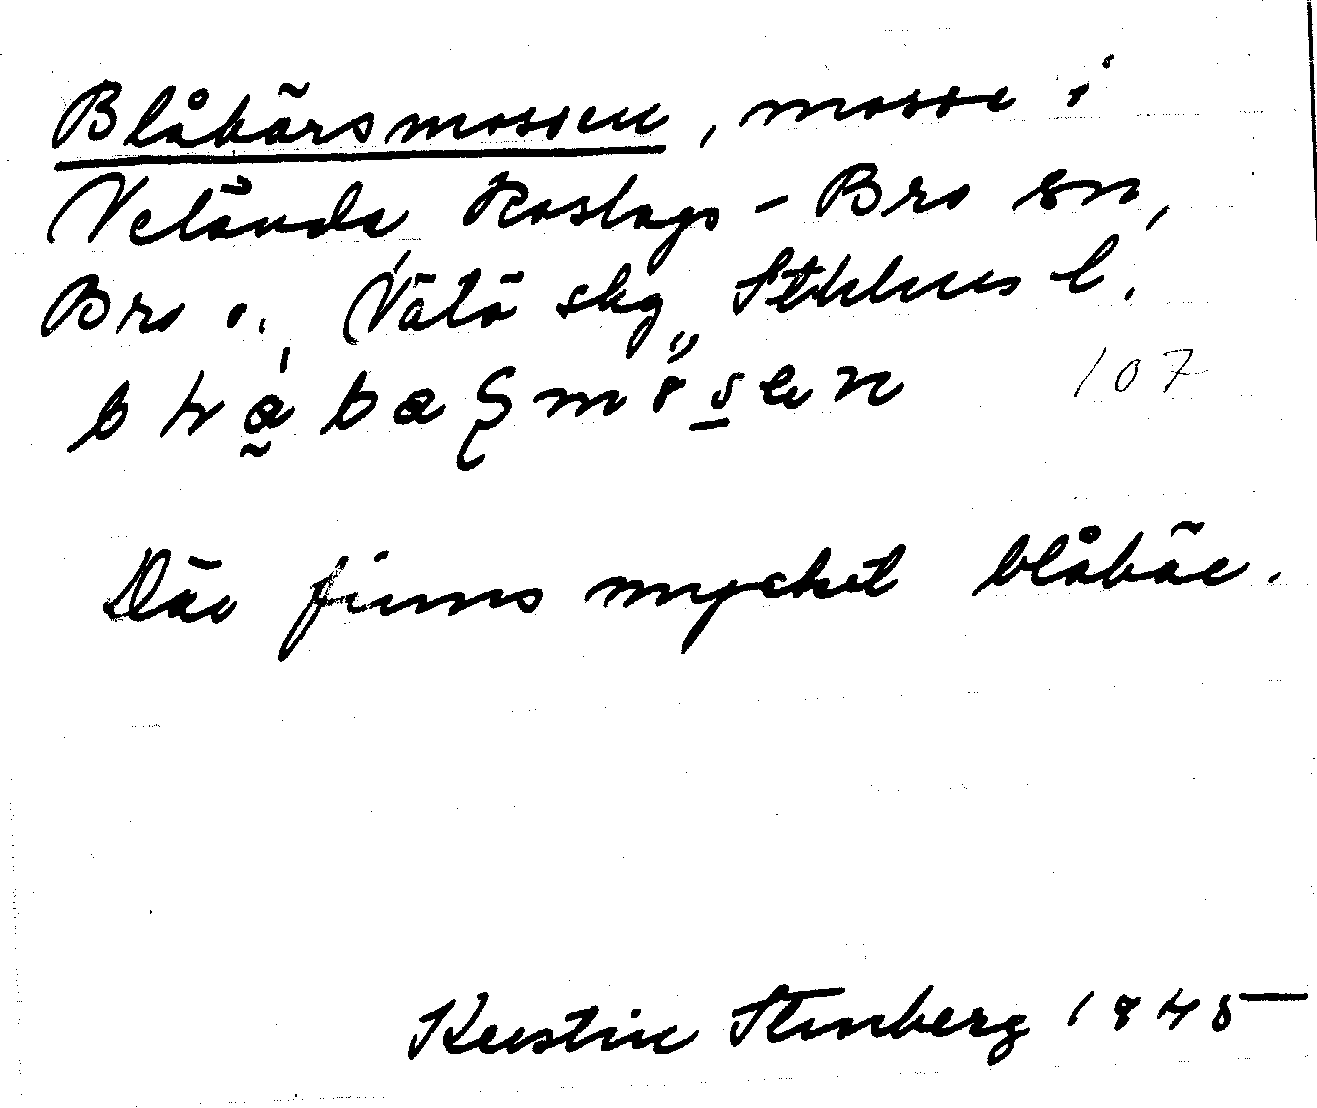 Blåbärsmossen, mosse i
Vetånda Roslags-Bro sn,
Bro o. Vätö skg, Sthlms l.
107
Där finns mycket blåbär.
Kerstin Stenberg 1945